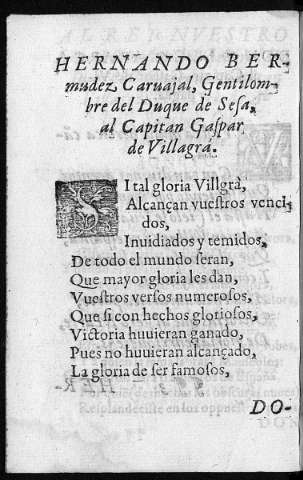 HERNANDO BER-
mudez Caruajal, Gentilom-
bre del Duque de Sesa,
al Capitan Gaſpar
de Villagra.
SI tal gloria Villgrà,
Alcançan vueſtros venci
dos,
Inuidiados y temidos,
De todo el mundo ſeran,
Que mayor gloria les dan,
Vueſtros verſos numeroſos,
Que ſi con hechos glorioſos,
Victoria huuieran ganado,
Pues no huuieran alcançado,
La gloria de ſer famoſos,
DO-